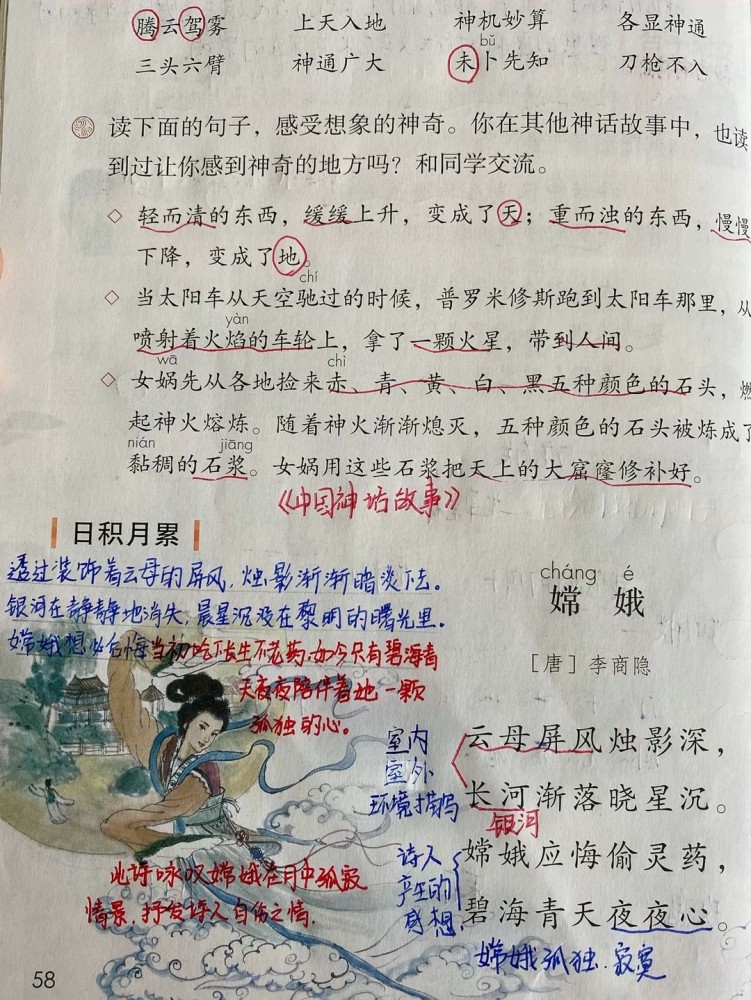 腾云驾雾 上天入地 神机妙算 各显神通
bǔ
三头六臂 神通广大 未卜先知 刀枪不入
读下面的句子，感受想象的神奇。你在其他神话故事中，也读
到过让你感到神奇的地方吗？和同学交流。
轻而清的东西，缓缓上升，变成了天；重而浊的东西，慢慢
下降，变成了地。
chí
当太阳车从天空驰过的时候，普罗米修斯跑到太阳车那里，从
yàn
喷射着火焰的车轮上，拿了一颗火星，带到人间。
wā chì
女娲先从各地捡来赤、青、黄、白、黑五种颜色的石头，燃
起神火熔炼。随着神火渐渐熄灭，五种颜色的石头被炼成了
nián jiāng
黏稠的石浆。女娲用这些石浆把天上的大窟窿修补好。
《中国神话故事》
日积月累
透过装饰着云母的屏风，烛影渐渐暗淡下去。
银河在静静地消失，晨星沉没在黎明的曙光里。
嫦娥想必后悔当初吃下长生不老药，如今只有碧海青
天夜夜陪伴着她一颗
孤独的心。
cháng é
嫦娥
［唐］李商隐
云母屏风烛影深，
长河渐落晓星沉。
嫦娥应悔偷灵药，
碧海青天夜夜心。
室内
室外
环境描写
银河
诗人
产生的
感想
嫦娥孤独、寂寞
此诗咏叹嫦娥在月中孤寂
情景，抒发诗人自伤之情.
58